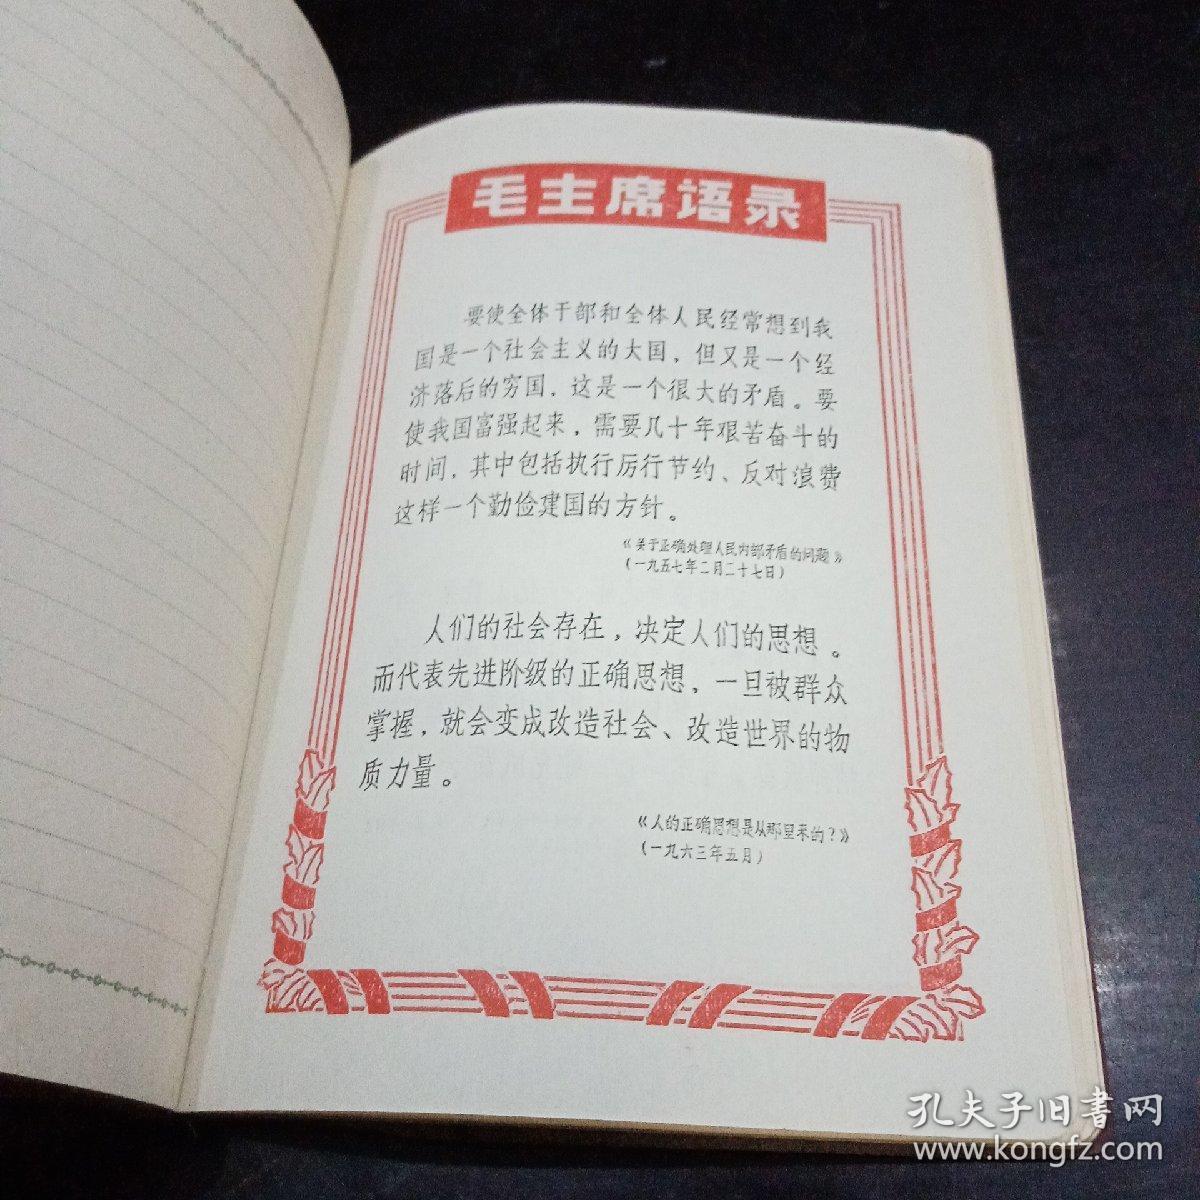 毛主席语录
要使全体干部和全体人民经常想到我
国是一个社会主义的大国，但又是一个经
济落后的穷国，这是一个很大的矛盾。要
使我国富强起来，需要几十年艰苦奋斗的
时间，其中包括执行厉行节约、反对浪费
这样一个勤俭建国的方针。
《关于正确处理人民内部矛盾的问题》
（一九五七年二月二十七日）
人们的社会存在，决定人们的思想。
而代表先进阶级的正确思想，一旦被群众
掌握，就会变成改造社会、改造世界的物
质力量。
《人的正确思想是从那里来的？》
（一九六三年五月）
孔夫子旧書网
www.kongfz.com